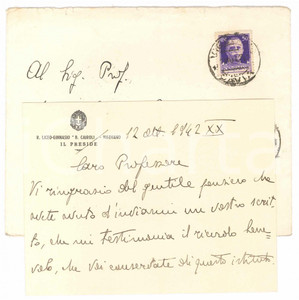 Al Sig. Prof.
R. LICEO-GINNASIO "B. CAIROLI" - VIGEVANO
IL PRESIDE
12 Ott. 1942 XX
Caro Professore
Vi ringrazio del gentile pensiero che
avete avuto d'inviarmi un vostro scrit-
to, che mi testimonia il ricordo bene-
volo, che voi conservate di questo istituto